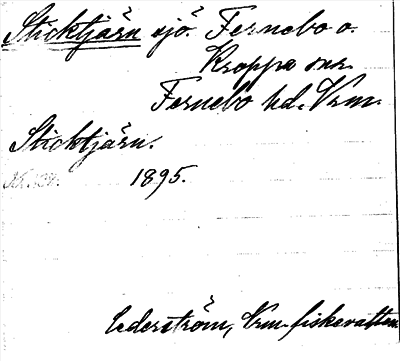 Sticktjärn sjö. Fernebo o.
Kroppa snr.
Fernebo hd. Vrm.
Sticktjärn.
1895.
Cederström, Vrm. fiskevatten